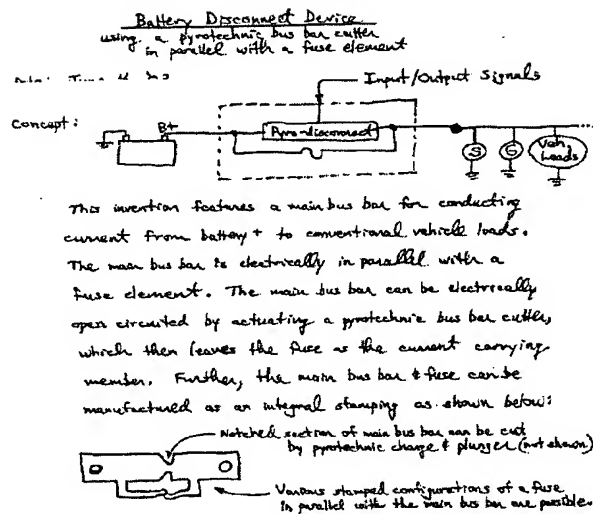 Battery Disconnect Device
using a pyrotechnic bus bar cutter
in parallel with a fuse element
Input/Output Signals
Concept:
B+
Pyro-disconnect
S
G
Veh.
Loads
This invention features a main bus bar for conducting
current from battery + to conventional vehicle loads.
The main bus bar is electrically in parallel with a
fuse element. The main bus bar can be electrically
open circuited by actuating a pyrotechnic bus bar cutter,
which then leaves the fuse as the current carrying
member. Further, the main bus bar & fuse can be
manufactured as an integral stamping as shown below:
Notched section of main bus bar can be cut
by pyrotechnic charge & plunger (not shown)
Various stamped configurations of a fuse
in parallel with the main bus bar are possible.